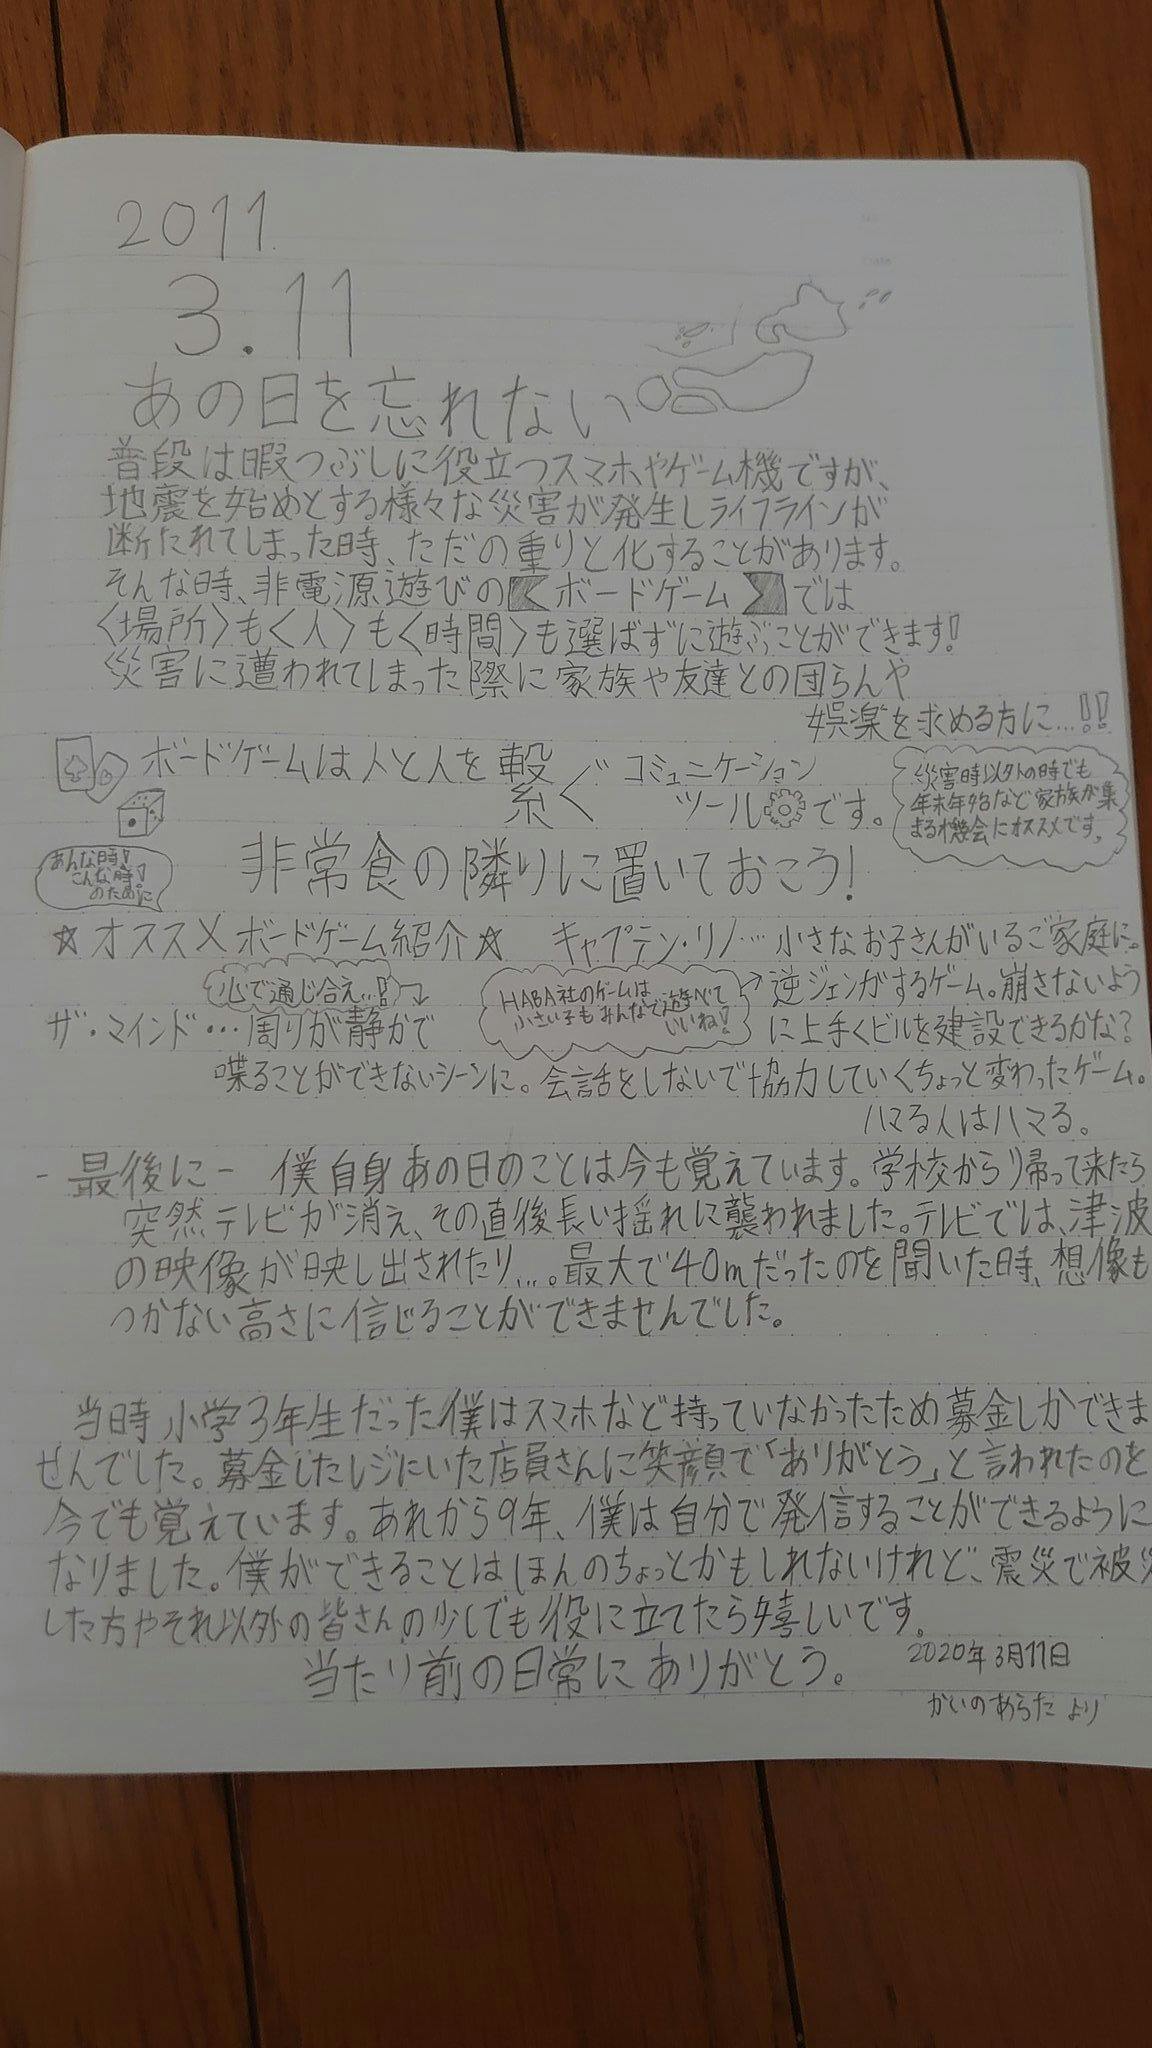 2011
3.11
あの日を忘れない
普段は暇つぶしに役立つスマホやゲーム機ですが、
地震を始めとする様々な災害が発生しライフラインが
断たれてしまった時、ただの重りと化することがあります。
そんな時、非電源遊びの【ボードゲーム】では
〈場所〉も〈人〉も〈時間〉も選ばずに遊ぶことができます!
災害に遭われてしまった際に家族や友達との団らんや
娯楽を求める方に…!!
ボードゲームは人と人を繋ぐコミュニケーション
ツールです。
災害時以外の時でも
年末年始など家族が集
まる機会にオススメです。
あんな時!
こんな時!
のために
非常食の隣りに置いておこう!
☆オススメボードゲーム紹介☆
キャプテン・リノ…小さなお子さんがいるご家庭に。
→逆ジェンガするゲーム。崩さないよう
に上手くビルを建設できるかな?
HABA社のゲームは
小さい子もみんなで遊べて
いいね!
心で通じ合え…!
ザ・マインド…周りが静かで
喋ることができないシーンに。会話をしないで協力していくちょっと変わったゲーム。
ハマる人はハマる。
-最後に- 僕自身あの日のことは今も覚えています。学校から帰って来たら
突然テレビが消え、その直後長い揺れに襲われました。テレビでは、津波
の映像が映し出されたり…。最大で40mだったのを聞いた時、想像も
つかない高さに信じることができませんでした。
当時小学3年生だった僕はスマホなど持っていなかったため募金しかできま
せんでした。募金したレジにいた店員さんに笑顔で「ありがとう」と言われたのを
今でも覚えています。あれから9年、僕は自分で発信することができるように
なりました。僕ができることはほんのちょっとかもしれないけれど、震災で被災
した方やそれ以外の皆さんの少しでも役に立てたら嬉しいです。
当たり前の日常にありがとう。
2020年3月11日
かいのあらた より